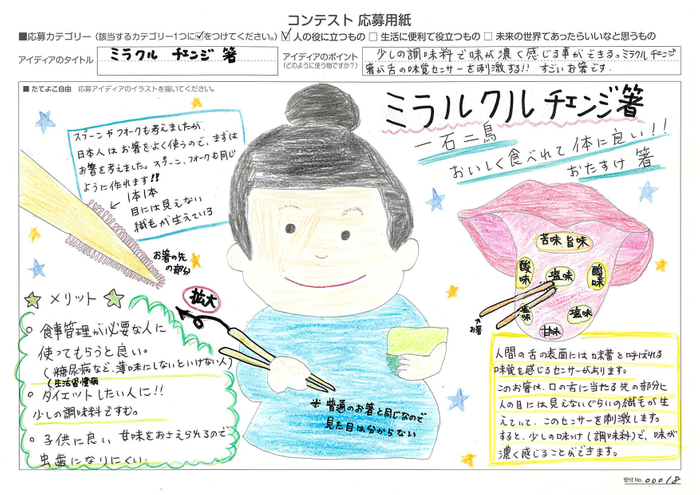 コンテスト 応募用紙
■応募カテゴリー(該当するカテゴリー1つに✓をつけてください。) ☑人の役に立つもの □生活に便利で役立つもの □未来の世界であったらいいなと思うもの
アイディアのタイトル
ミラクル チェンジ 箸
アイディアのポイント
(どのように使う物ですか?)
少しの調味料で味が濃く感じる事ができる。ミラクルチェンジ
箸が舌の味覚センサーを刺激する!! すごいお箸です。
■たてよこ自由 応募アイディアのイラストを描いてください。
スプーンやフォークも考えましたが
日本人はお箸をよく使うので、まずは
お箸を考えました。スプーン、フォークも同じ
ように作れます!!
1本1本
目には見えない
繊毛が生えている
お箸の先
の部分
ミラルクルチェンジ箸
一石二鳥
おいしく食べれて体に良い!!
おたすけ 箸
苦味 旨味
酸味
塩味
酸味
塩味
塩味
甘味
お箸
拡大
☆メリット☆
○食事管理が必要な人に
使ってもらうと良い。
(糖尿病など、薄味にしないといけない人)
(生活習慣病
○ダイエットしたい人に!!
少しの調味料ですむ。
○子供に良い 甘味をおさえられるので
虫歯になりにくい
※普通のお箸と同じなので
見た目は分からない
人間の舌の表面には味蕾と呼ばれる
味覚を感じるセンサーがあります。
このお箸は、口の舌に当たる先の部分に
人の目には見えないぐらいの繊毛が生
えていて、このセンサーを刺激します。
すると、少しの味つけ(調味料)で、味が
濃く感じることができます。
受付No. 00018